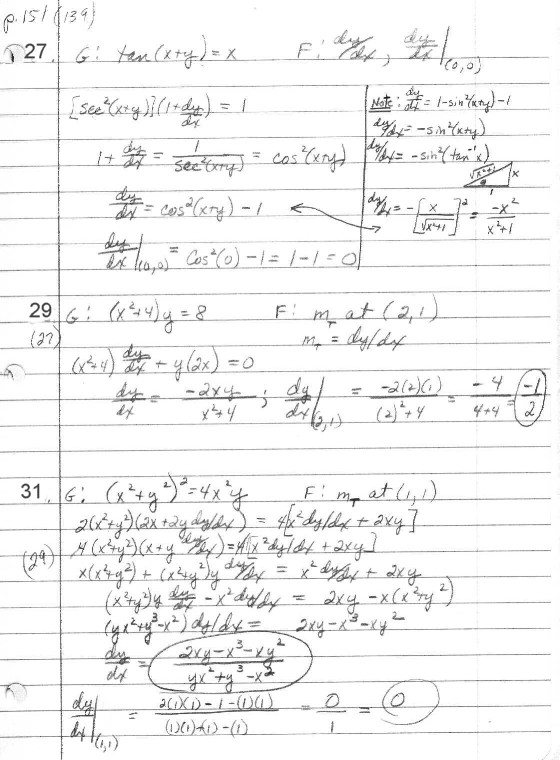 p. 151 (139)
27. G: tan(x+y) = x F: dy/dx, dy/dx|(0,0)
[sec²(x+y)](1+dy/dx) = 1
1 + dy/dx = 1/sec²(x+y) = cos²(x+y)
dy/dx = cos²(x+y) - 1
dy/dx|(0,0) = cos²(0) - 1 = 1 - 1 = 0
Note: dy/dx = 1-sin²(x+y) - 1
dy/dx = -sin²(x+y)
dy/dx = -sin²(tan⁻¹x)
√x²+1 x
1
dy/dx = -[x/√x²+1]² = -x²/x²+1
29 G: (x²+4)y = 8 F: m_T at (2,1)
(27) m_T = dy/dx
(x²+4) dy/dx + y(2x) = 0
dy/dx = -2xy/x²+4 ; dy/dx|(2,1) = -2(2)(1)/(2)²+4 = -4/4+4 = -1/2
31. G: (x²+y²)² = 4x²y F: m_T at (1,1)
2(x²+y²)(2x+2y dy/dx) = 4[x² dy/dx + 2xy]
4(x²+y²)(x+y dy/dx) = 4[x² dy/dx + 2xy]
(29) x(x²+y²) + (x²+y²)y dy/dx = x² dy/dx + 2xy
(x²+y²)y dy/dx - x² dy/dx = 2xy - x(x²+y²)
(yx²+y³-x²) dy/dx = 2xy-x³-xy²
dy/dx = 2xy-x³-xy²/yx²+y³-x²
dy/dx|(1,1) = 2(1)(1) - 1 - (1)(1)/(1)(1)+(1)-(1) = 0/1 = 0